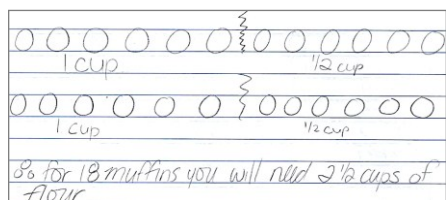 1 cup 1/2 cup
1 cup 1/2 cup
∴ for 18 muffins you will need 2 1/2 cups of
flour